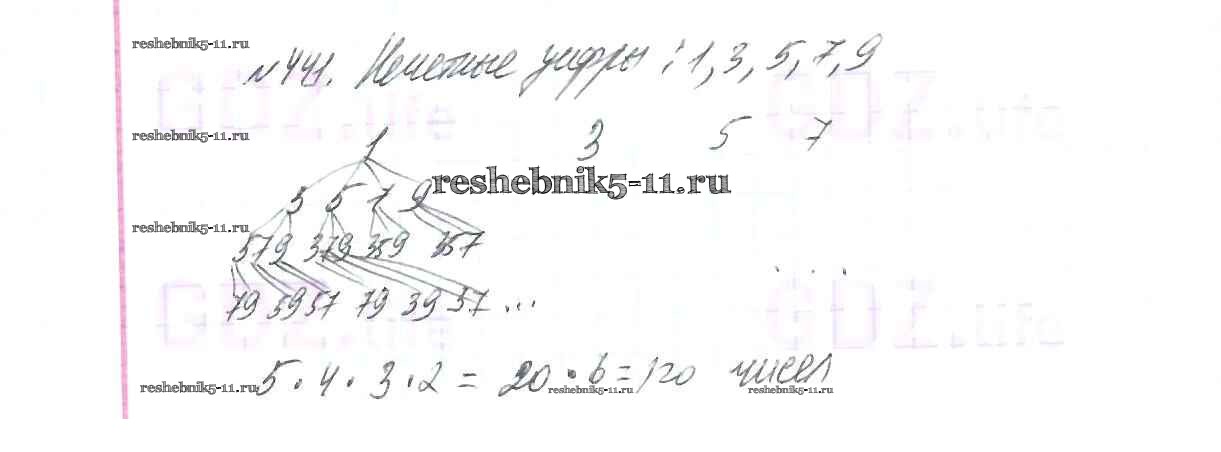 reshebnik5-11.ru
№441. Нечетные цифры: 1, 3, 5, 7, 9
GDZ.life GDZ.life
reshebnik5-11.ru
1 3 5 7
reshebnik5-11.ru
3 5 7 9
reshebnik5-11.ru
579 379 359 357
GDZ.life GDZ.life
79 59 57 79 39 37 ...
5 · 4 · 3 · 2 = 20 · 6 = 120 чисел
reshebnik5-11.ru reshebnik5-11.ru reshebnik5-11.ru